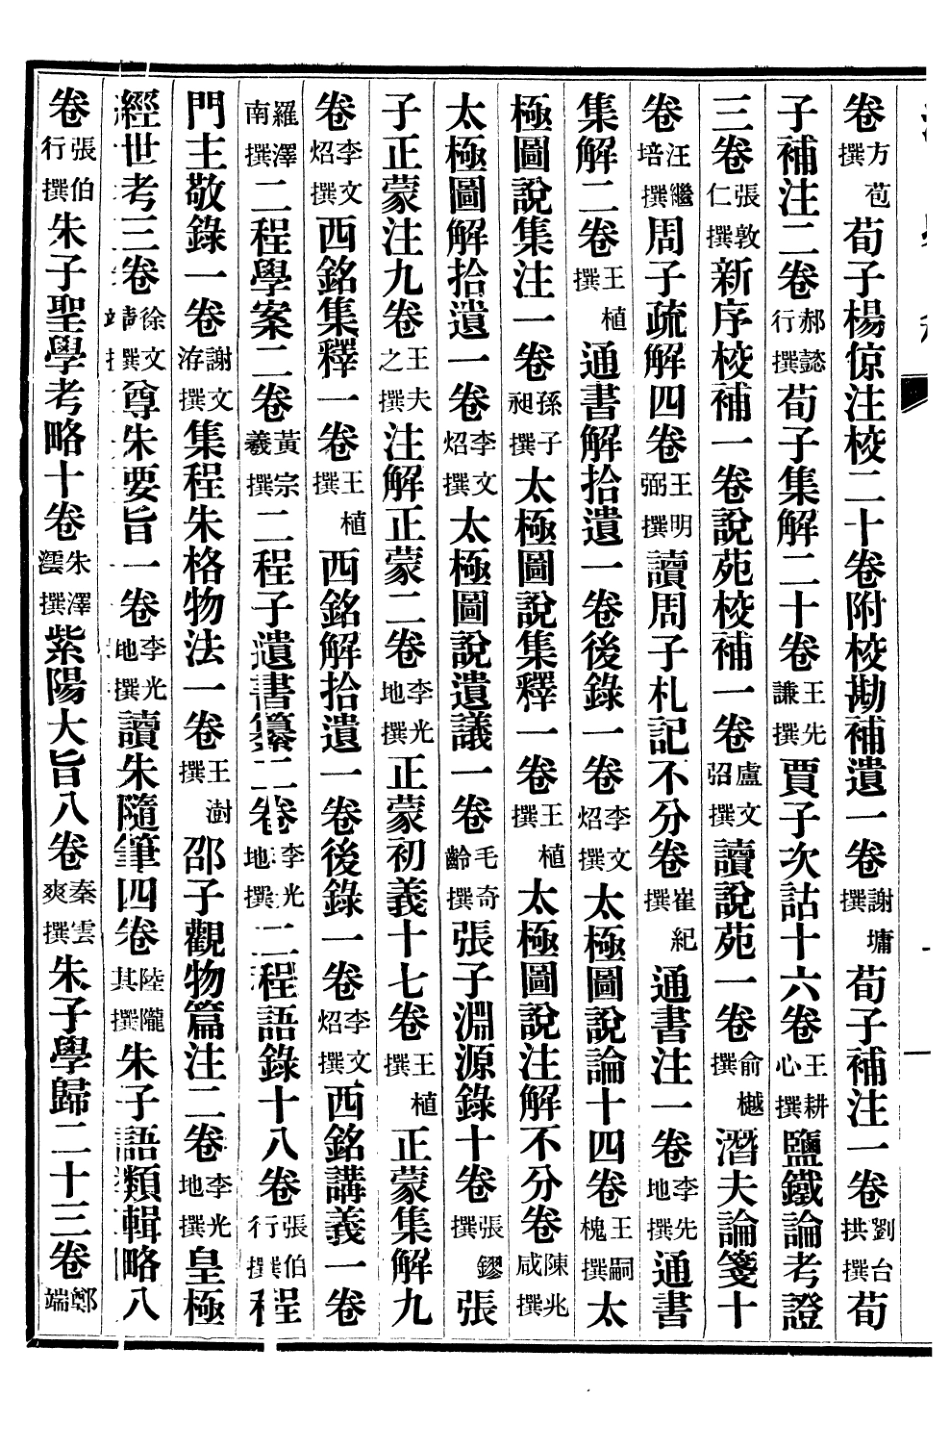 卷方苞撰荀子楊倞注校二十卷附校勘補遺一卷謝墉撰荀子補注一卷劉台拱撰荀
子補注二卷郝懿行撰荀子集解二十卷王先謙撰賈子次詁十六卷王耕心撰鹽鐵論考證
三卷張敦仁撰新序校補一卷說苑校補一卷盧文弨撰讀說苑一卷俞樾撰潛夫論箋十
卷汪繼培撰周子疏解四卷王明弼撰讀周子札記不分卷崔紀撰通書注一卷李光地撰通書
集解二卷王植撰通書解拾遺一卷後錄一卷李文炤撰太極圖說論十四卷王嗣槐撰太
極圖說集注一卷孫子昶撰太極圖說集釋一卷王植撰太極圖說注解不分卷陳兆咸撰
太極圖解拾遺一卷李文炤撰太極圖說遺議一卷毛奇齡撰張子淵源錄十卷張鏐撰張
子正蒙注九卷王夫之撰注解正蒙二卷李光地撰正蒙初義十七卷王植撰正蒙集解九
卷李文炤撰西銘集釋一卷王植撰西銘解拾遺一卷後錄一卷李文炤撰西銘講義一卷
羅澤南撰二程學案二卷黃宗羲撰二程子遺書纂二卷李光地撰二程語錄十八卷張伯行撰程
門主敬錄一卷謝文洊撰集程朱格物法一卷王澍撰邵子觀物篇注二卷李光地撰皇極
經世考三卷徐文靖撰尊朱要旨一卷李光地撰讀朱隨筆四卷陸隴其撰朱子語類輯略八
卷張伯行撰朱子聖學考略十卷朱澤澐撰紫陽大旨八卷秦雲爽撰朱子學歸二十三卷鄭端